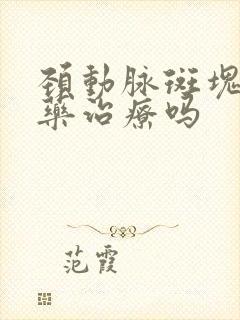 頚動脉斑塊
藥治療吗
范霞